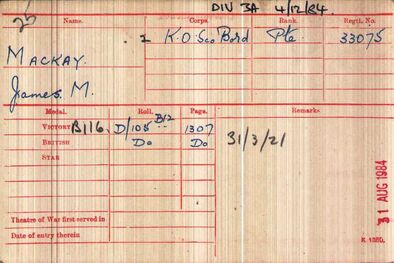 DIV 3A 4/12/84
25
Name. Corps. Rank. Regtl. No.
1 K.O. Sco Bord Pte 33075
MACKAY.
James M.
Medal. Roll. Page. Remarks.
VICTORY B116. D/105 B12 1307
BRITISH Do Do 31/3/21
STAR
31 AUG 1984
Theatre of War first served in
Date of entry therein
K 1380.